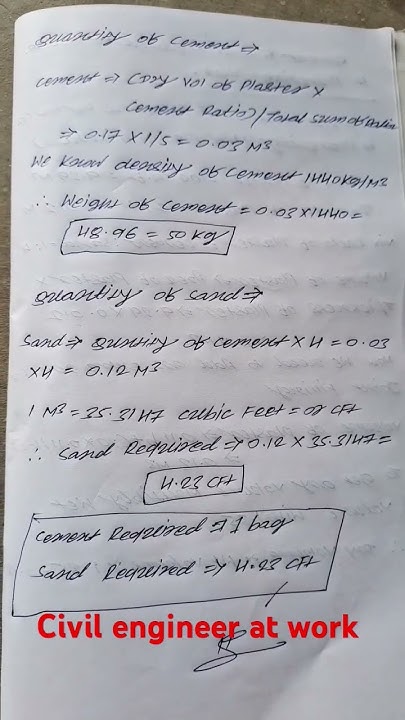 Quantity of Cement ⇒
Cement ⇒ (Dry Vol of Plaster x
Cement Ratio)/Total Sum of Ratio
⇒ 0.17 x 1/5 = 0.03 M³
We Known density of Cement 1440 kg/M³
∴ Weight of Cement = 0.03 x 1440 =
48.96 = 50 kg
Quantity of sand ⇒
Sand ⇒ Quntity of Cement x 4 = 0.03
x 4 = 0.12 M³
1 M³ = 35.3147 Cubic Feet = or CFT
∴ Sand Required ⇒ 0.12 x 35.3147 =
4.23 CFT
Cement Required ⇒ 1 bag
Sand Required ⇒ 4.23 CFT
Civil engineer at work